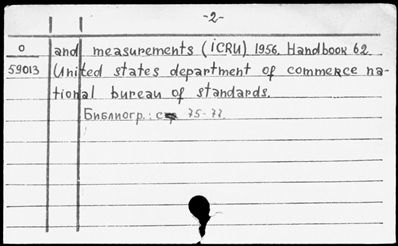 -2-
О and measurements (ICRU) 1956. Handbook 62.
59013 United states department of commerce na-
tional bureau of standards.
Библиогр.: стр 75-77.